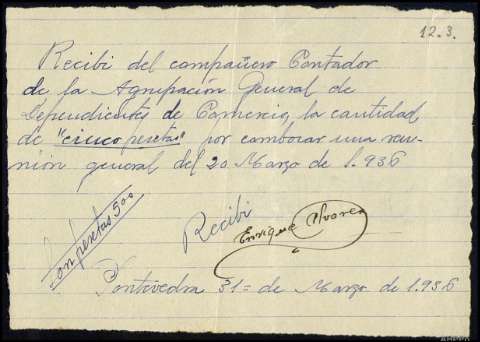 12.3.
Recibí del compañero Contador
de la Agrupación General de
Dependientes de Comercio, la cantidad
de "cinco pesetas" por convocar una reu-
nión general del 20 Marzo de 1.936
Son pesetas 5'00
Recibí
Enrique Alvarez
Pontevedra 31 = de Marzo de 1.936